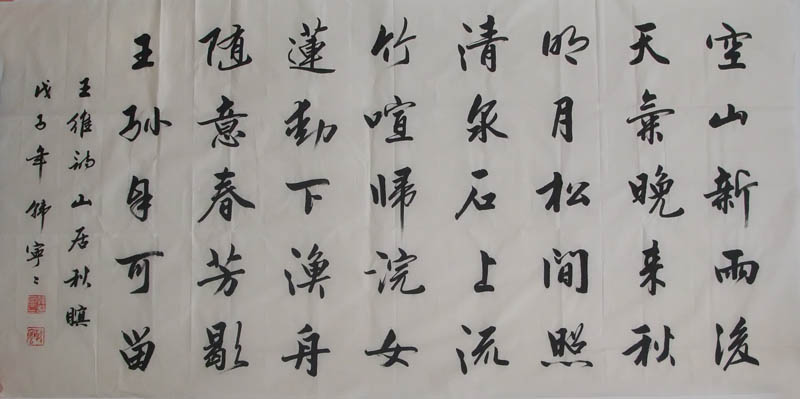 空山新雨後
天氣晚来秋
明月松间照
清泉石上流
竹喧歸浣女
蓮動下渔舟
随意春芳歇
王孙自可留
王維詩山居秋暝
戊子年